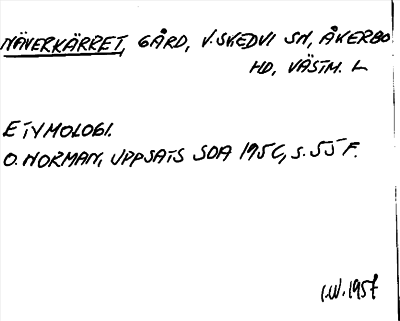 NÄVERKÄRRET, GÅRD, V. SKEDVI SN, ÅKERBO
HD, VÄSTM. L
ETYMOLOGI.
O. NORMAN, UPPSATS SOA 1956, S. 55 F.
I.W. 1957